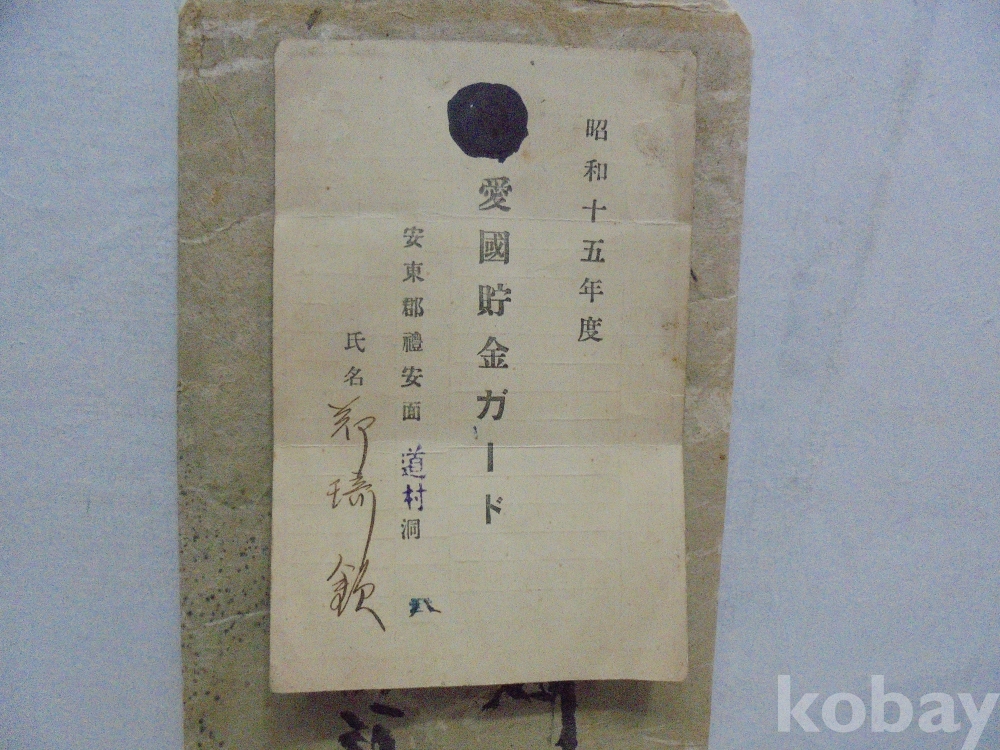 昭和十五年度
愛國貯金ガード
安東郡禮安面道村洞
氏名 鄭琦鎖
kobay